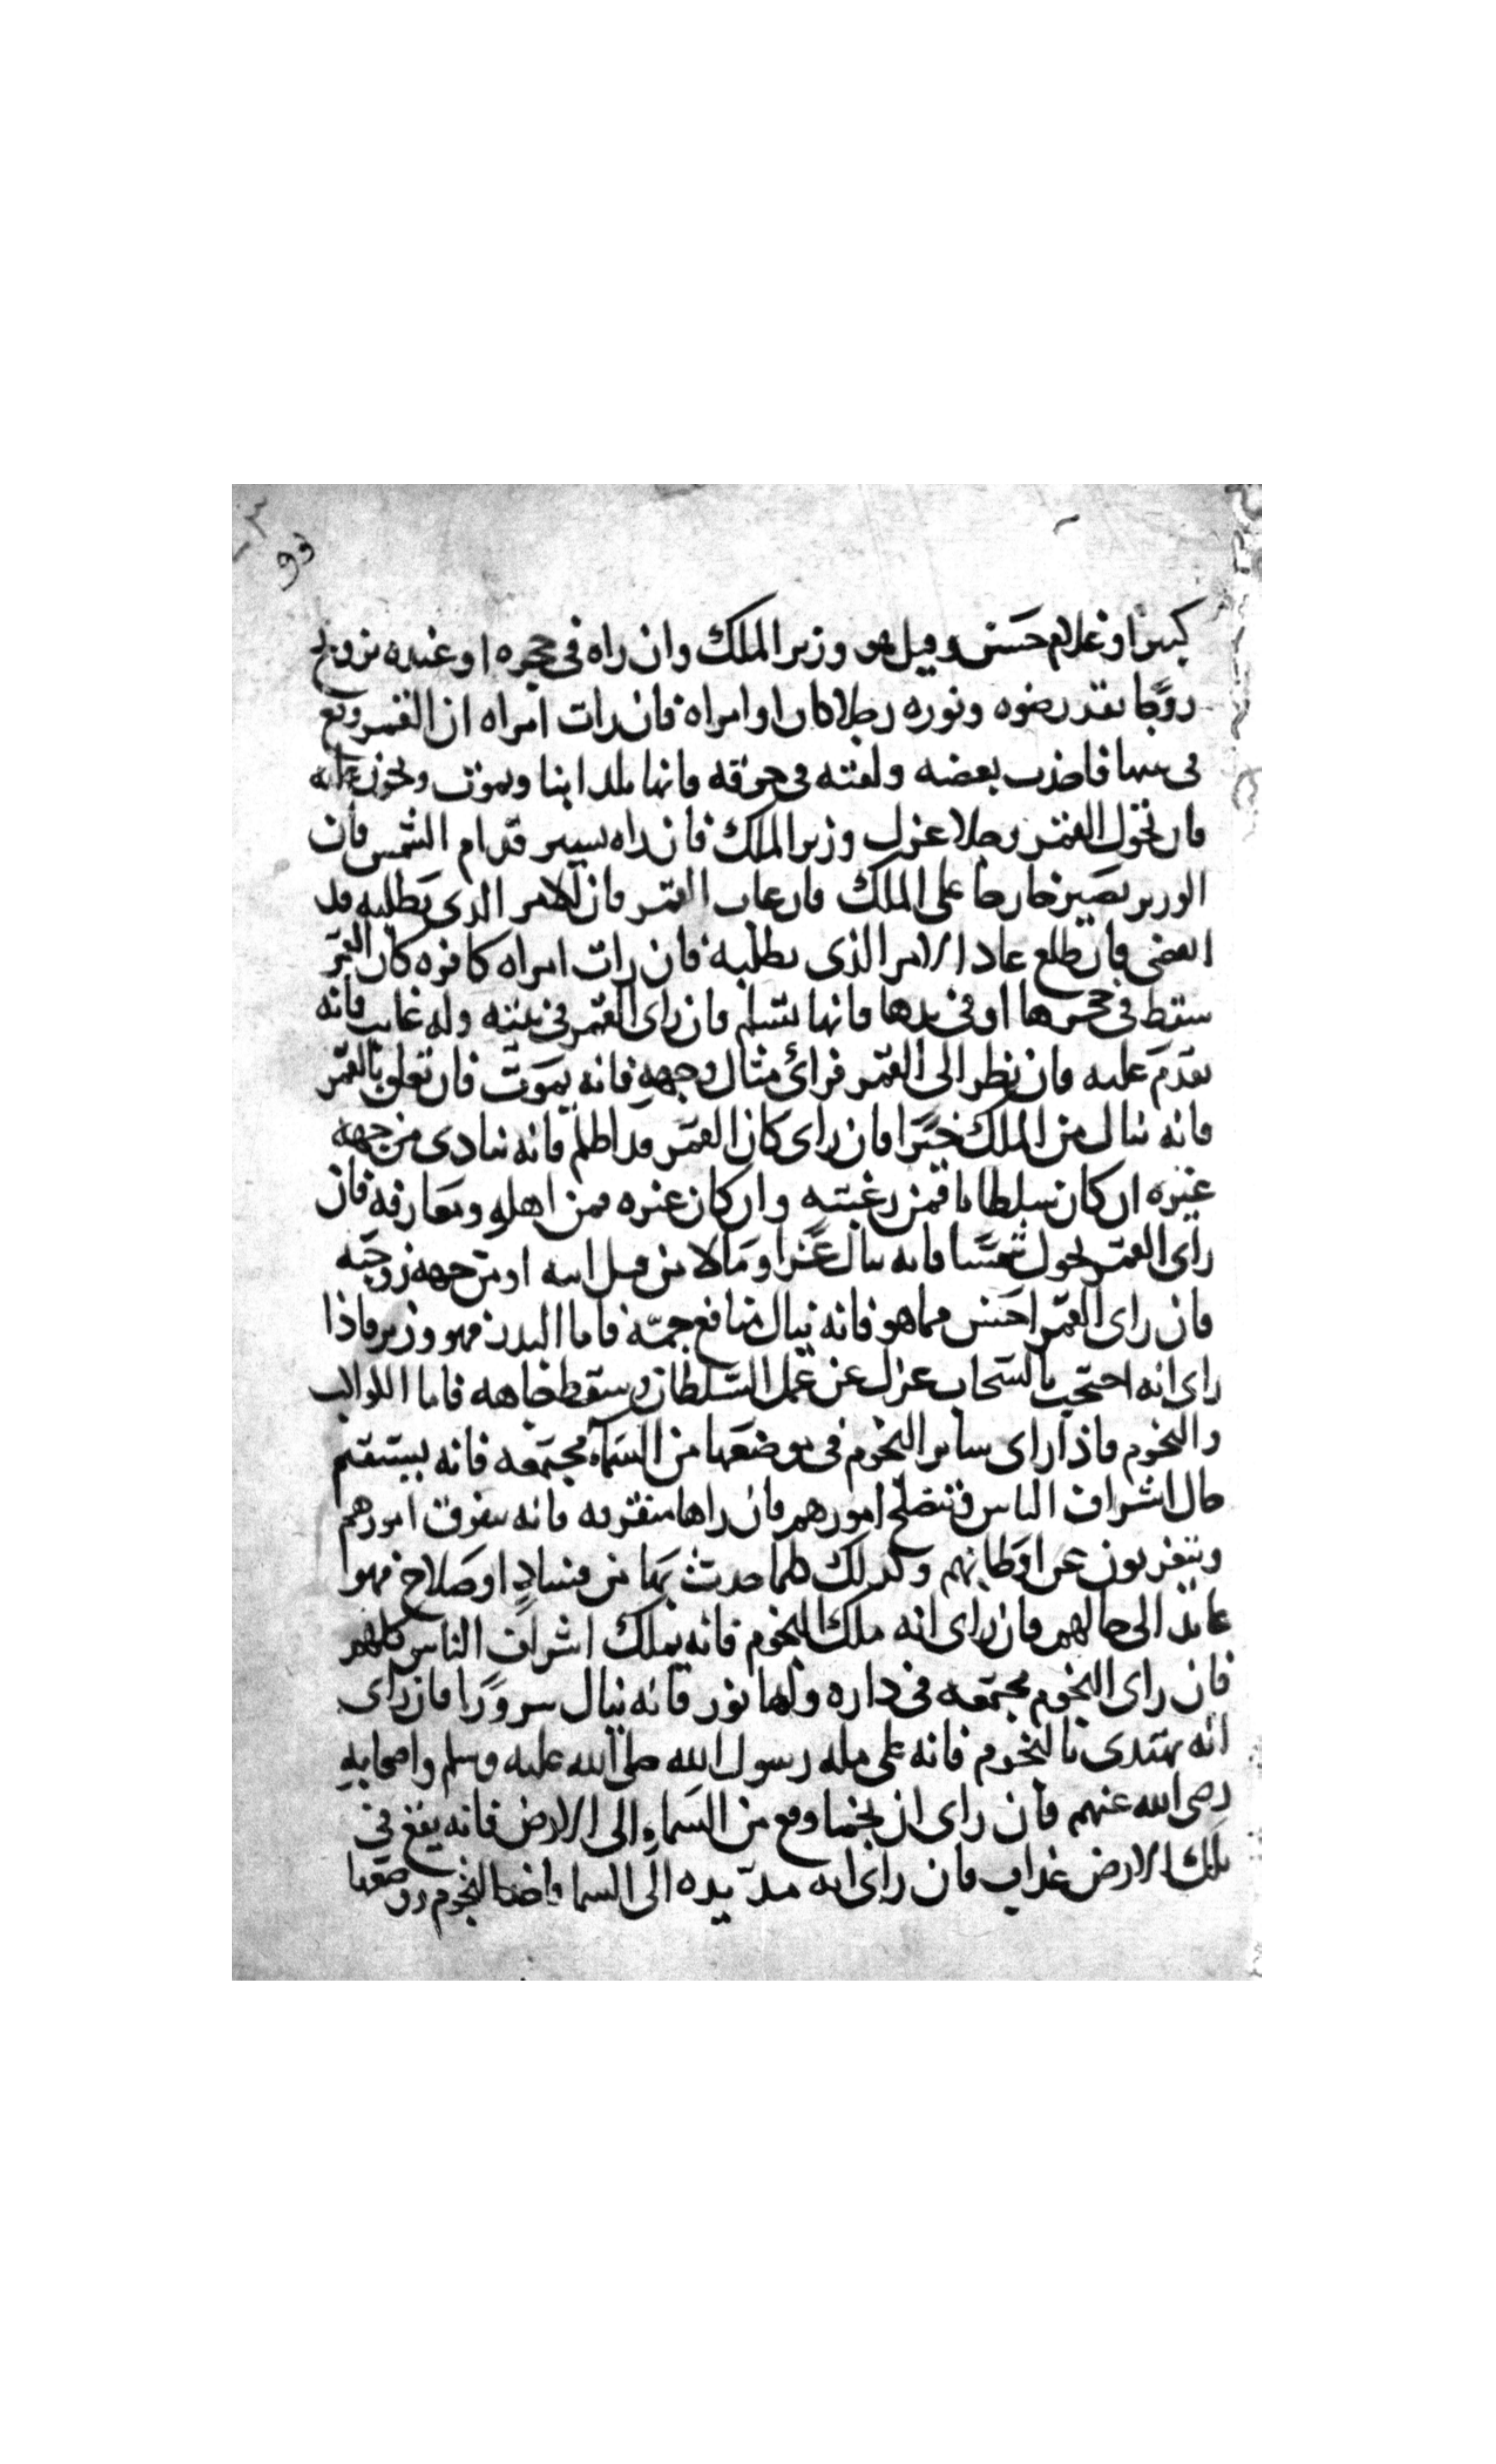 كبيرا او غلام حسن وقيل هو وزير الملك وان راه في حجره او عنده تزوج
زوجا بقدر ضوه ونوره رجلا كان او امراه فان رات امراه ان القمر وقع
في بيتها فاخذت بعضه ولفته في خرقه فانها تلد ابنا ويموت وتحزن عليه
فان تحول القمر رجلا عزل وزير الملك فان راه يسير قدام الشمس فان
الوزير يصير خارجا على الملك فان غاب القمر فان الامر الذي يطلبه قد
انقضى فان طلع عاد الامر الذي يطلبه فان رات امراه كافره كان القمر
سقط في حجرها او في يدها فانها تسلم فان راى القمر في بيته وله غايب فانه
يقدم عليه فان نظر الى القمر فرأى مثال وجهه فانه يموت فان تعلق بالقمر
فانه ينال من الملك خيرا فان راى كان القمر قد اظلم فانه ينادى من جهه
غيره ان كان سلطانا فمن رعيته وان كان غيره فمن اهله ومعارفه فان
راى القمر تحول شمسا فانه ينال عزا ومالا من قبل ابيه او من جهه زوجته
فان راى القمر احسن مما هو فانه ينال منافع جمه فاما البدر فهو وزير فاذا
راى انه احتجب بالسحاب عزل عن عمل السلطان وسقط جاهه فاما الكواكب
والنجوم فاذا راى ساير النجوم في موضعها من السماء مجتمعه فانه يستقيم
حال اشراف الناس وتنصلح امورهم فان راها متفرقه فانه يتفرق امورهم
ويتغربون عن اوطانهم وكذلك كلما حدث بها من فساد او صلاح فهوا
عايد الى حالهم فان راى انه ملك النجوم فانه يملك اشراف الناس كلهم
فان راى النجوم مجتمعه في داره ولها نور فانه ينال سرورا فان راى
انه يهتدى بالنجوم فانه على مله رسول الله صلى الله عليه وسلم واصحابه
رضى الله عنهم فان راى ان نجما وقع من السماء الى الارض فانه يقع في
تلك الارض عذاب فان راى انه مد يده الى السما فاخذ النجوم ووضعها